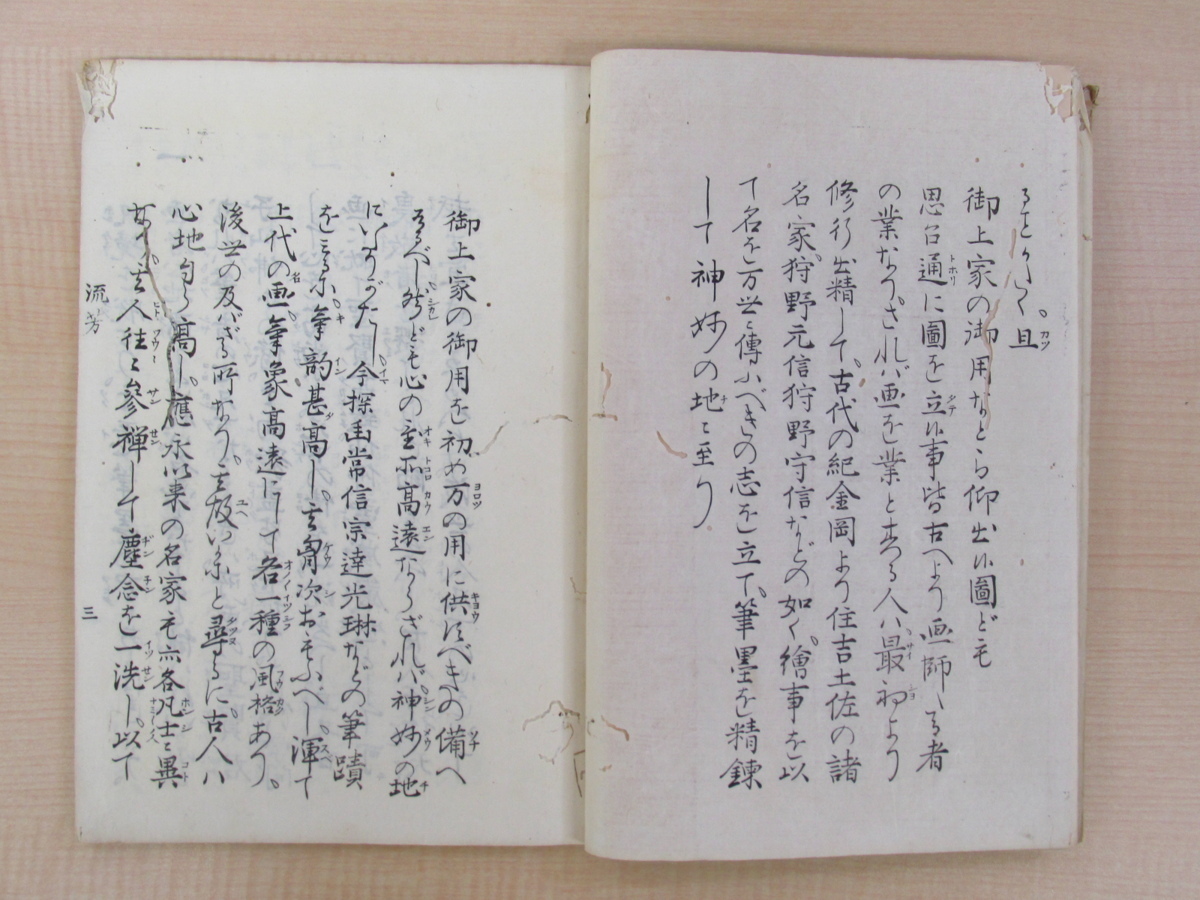 るとかや。且
御上家の御用などら仰出休圖ども
思召通に圖を立休事皆古へより画師たる者
の業なり。されバ画を業とする人ハ最初より
修行出精して。古代の紀金岡より住吉土佐の諸
名家。狩野元信狩野守信などの如く。繪事を以
て名を万世に傳ふべきの志を立て。筆墨を精錬
して神妙の地に至り
御上家の御用を初め万の用に供すべきの備へ
あるべし。然ども心の至所高遠ならざれバ。神妙の地
にいたりがたし。今探幽常信宗達光琳などの筆蹟
を見るに。氣韵甚高し。其胷次おもふべし。渾て
上代の画。筆象高遠にして各一種の風格あり。
後世の及バざる所なり。其故いかにと尋るに。古人ハ
心地自ら高し。應永以来の名家も亦各凡士に異
なり。其人往々參禅して塵念を一洗し。以て
流芳
三